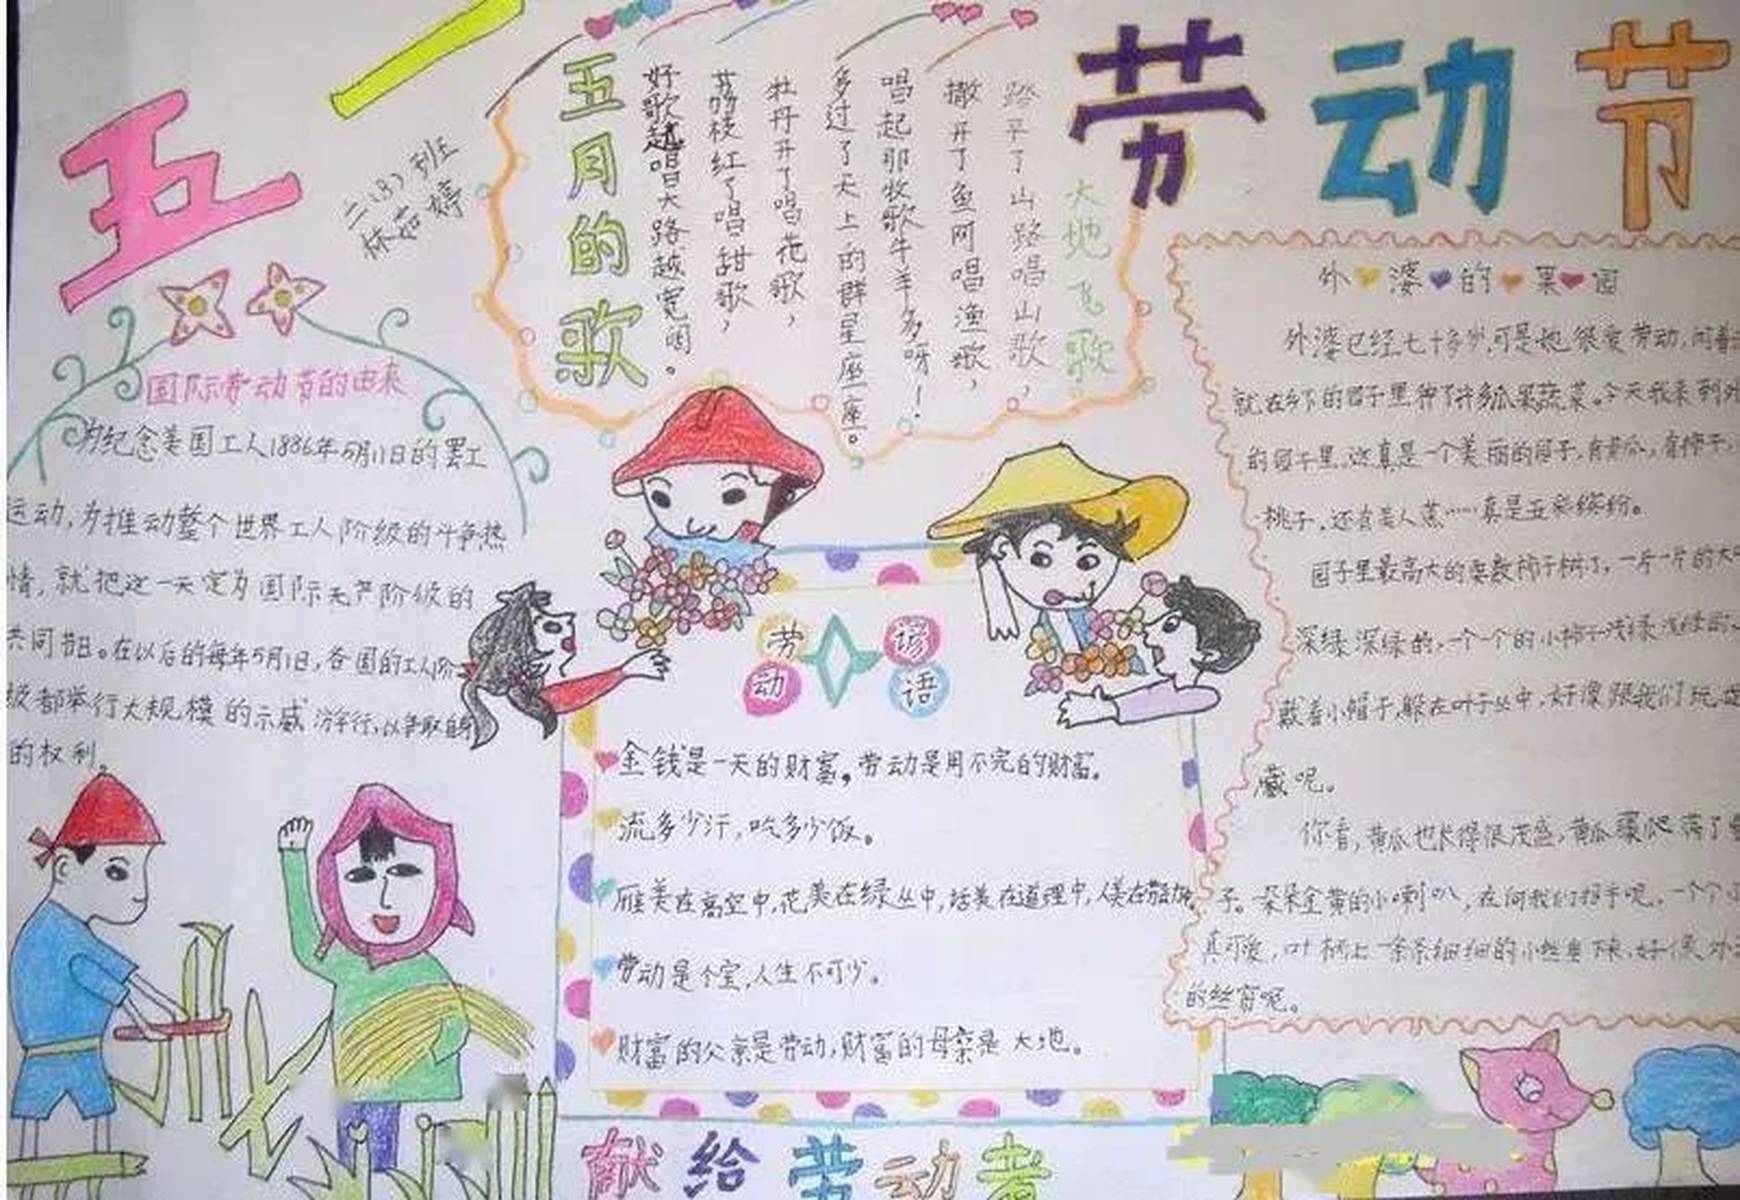 五一
劳动节
二(8)班
林茹婷
五月的歌
大地飞歌
踏平了山路唱山歌，
撒开了鱼网唱渔歌，
唱起那牧歌牛羊多呀！
多过了天上的群星座座。
牡丹开了唱花歌，
荔枝红了唱甜歌，
好歌越唱天路越宽阔。
国际劳动节的由来
为纪念美国工人1886年5月11日的罢工
运动，为推动整个世界工人阶级的斗争热
情，就把这一天定为国际无产阶级的
共同节日。在以后的每年5月1日，各国的工人阶
级都举行大规模的示威游行，以争取自身
的权利。
劳动谚语
金钱是一天的财富，劳动是用不完的财富。
流多少汗，吃多少饭。
雁美在高空中，花美在绿丛中，话美在道理中，人美在劳动中。
劳动是个宝，人生不可少。
财富的父亲是劳动，财富的母亲是大地。
献给劳动者
外婆的果园
外婆已经七十多岁，可是她很爱劳动，闲着
就在乡下的园子里种了许多瓜果蔬菜。今天我来到外
的园子里。这真是一个美丽的园子，有黄瓜，有柿子，
桃子，还有美人蕉……真是五彩缤纷。
园子里最高大的要数柿子树了，一片一片的大叶
深绿深绿的，一个个的小柿子浅绿浅绿的，
戴着小帽子，躲在叶子丛中，好像跟我们玩捉
藏呢。
你看，黄瓜也长得很茂盛，黄瓜蔓爬满了
子。朵朵金黄的小喇叭，在向我们招手呢。一个个
真可爱，叶柄上一条条细细的小丝垂下来，好像外
的丝窗呢。